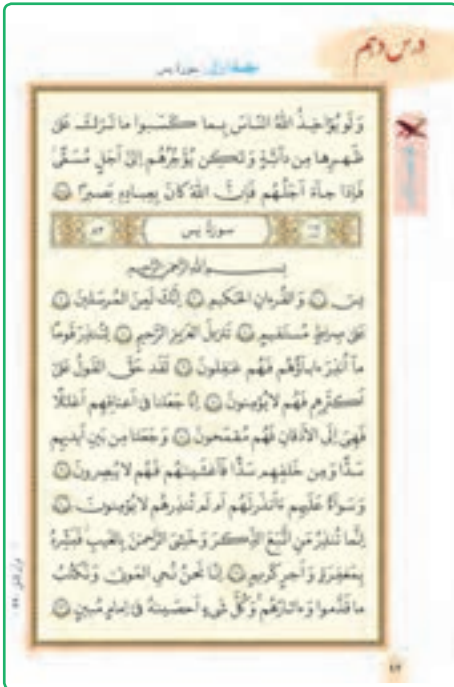 درس دهم
جلسه اول: سوره یس
وَ لَو یُؤاخِذُ اللهُ النّاسَ بِما کَسَبوا ما تَرَکَ عَلىٰ
ظَهرِها مِن دابَّةٍ وَ لٰکِن یُؤَخِّرُهُم اِلىٰ اَجَلٍ مُسَمًّى
فَاِذا جاءَ اَجَلُهُم فَاِنَّ اللهَ کانَ بِعِبادِهٖ بَصیرًا
سورة یس
بِسمِ اللهِ الرَّحمٰنِ الرَّحیمِ
یسٓ ۱ وَ القُرءانِ الحَکیمِ ۲ اِنَّکَ لَمِنَ المُرسَلینَ ۳
عَلىٰ صِراطٍ مُستَقیمٍ ۴ تَنزیلَ العَزیزِ الرَّحیمِ ۵ لِتُنذِرَ قَومًا
ما اُنذِرَ ءاباؤُهُم فَهُم غافِلونَ ۶ لَقَد حَقَّ القَولُ عَلىٰ
اَکثَرِهِم فَهُم لا یُؤمِنونَ ۷ اِنّا جَعَلنا فى اَعناقِهِم اَغلالًا
فَهِىَ اِلَى الاَذقانِ فَهُم مُقمَحونَ ۸ وَ جَعَلنا مِن بَینِ اَیدیهِم
سَدًّا وَ مِن خَلفِهِم سَدًّا فَاَغشَیناهُم فَهُم لا یُبصِرونَ ۹
وَ سَواءٌ عَلَیهِم ءَاَنذَرتَهُم اَم لَم تُنذِرهُم لا یُؤمِنونَ ۱۰
اِنَّما تُنذِرُ مَنِ اتَّبَعَ الذِّکرَ وَ خَشِىَ الرَّحمٰنَ بِالغَیبِ فَبَشِّرهُ
بِمَغفِرَةٍ وَ اَجرٍ کَریمٍ ۱۱ اِنّا نَحنُ نُحىِ المَوتىٰ وَ نَکتُبُ
ما قَدَّموا وَ ءاثارَهُم وَ کُلَّ شَىءٍ اَحصَیناهُ فى اِمامٍ مُبینٍ ۱۲